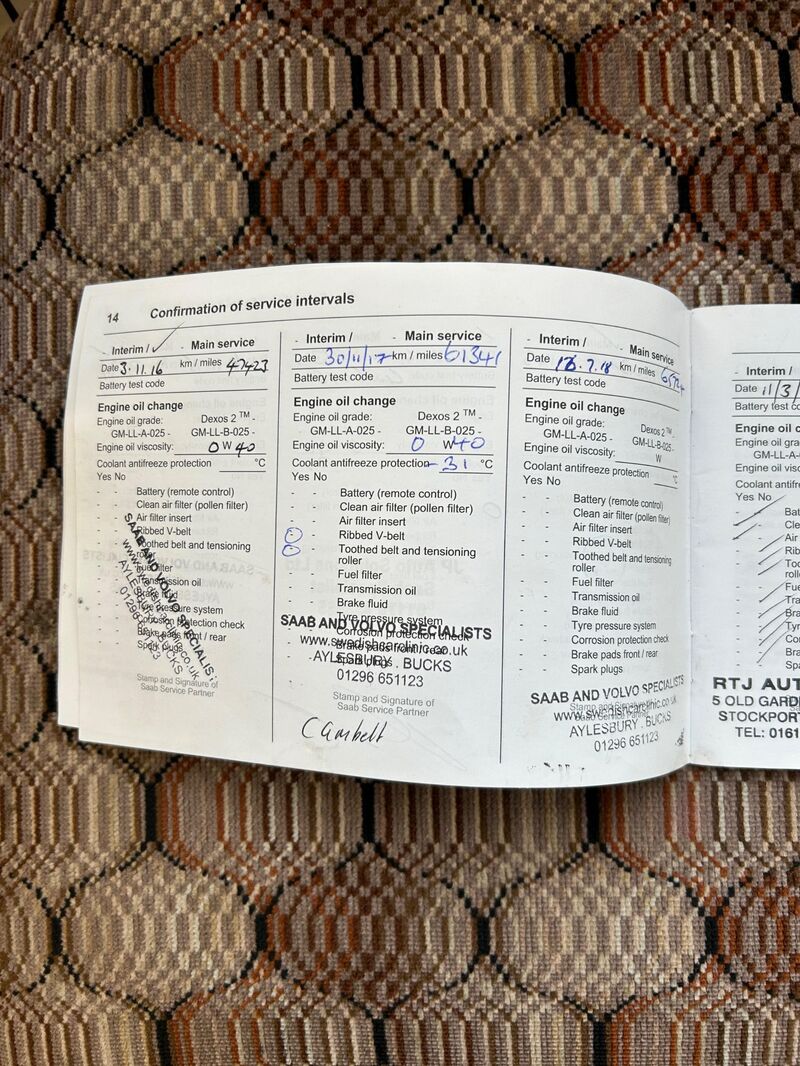 14 Confirmation of service intervals
- Interim / ✓ - Main service
Date 3.11.16 km / miles 47423
Battery test code
Engine oil change
Engine oil grade: Dexos 2 TM -
GM-LL-A-025 - GM-LL-B-025 -
Engine oil viscosity: 0 W 40
Coolant antifreeze protection °C
Yes No
- - Battery (remote control)
- - Clean air filter (pollen filter)
- - Air filter insert
- Ribbed V-belt
- Toothed belt and tensioning
roller
- Fuel filter
- Transmission oil
- Brake fluid
- Tyre pressure system
- Corrosion protection check
- Brake pads front / rear
- Spark plugs
SAAB AND VOLVO SPECIALIST
AYLESBURY BUCKS
Stamp and Signature of
Saab Service Partner
- Interim / - Main service
Date 30/11/17 km / miles 61341
Battery test code
Engine oil change
Engine oil grade: Dexos 2 TM -
GM-LL-A-025 - GM-LL-B-025 -
Engine oil viscosity: 0 W 40
Coolant antifreeze protection -31 °C
Yes No
- - Battery (remote control)
- - Clean air filter (pollen filter)
- - Air filter insert
- - Ribbed V-belt
- - Toothed belt and tensioning
roller
- - Fuel filter
- - Transmission oil
- - Brake fluid
- - Tyre pressure system
- Corrosion protection check
- Brake pads front / rear
- Spark plugs
SAAB AND VOLVO SPECIALISTS
www.swedishcarclinic.co.uk
AYLESBURY . BUCKS
01296 651123
Stamp and Signature of
Saab Service Partner
Cambelt
- Interim / - Main service
Date .7.18 km / miles
Battery test code
Engine oil change
Engine oil grade: Dexos 2 TM -
GM-LL-A-025 - GM-LL-B-025 -
Engine oil viscosity: W
Coolant antifreeze protection °C
Yes No
- - Battery (remote control)
- - Clean air filter (pollen filter)
- - Air filter insert
- - Ribbed V-belt
- - Toothed belt and tensioning
roller
- - Fuel filter
- - Transmission oil
- - Brake fluid
- - Tyre pressure system
- - Corrosion protection check
- - Brake pads front / rear
- - Spark plugs
SAAB AND VOLVO SPECIALISTS
www.swedishcarclinic.co.uk
AYLESBURY . BUCKS
01296 651123
- Interim /
Date 11/3/
Battery test
Engine oil c
Engine oil gra
GM-LL-A
Engine oil visc
Coolant antif
Yes No
Bat
Cle
Air
Rib
Too
roll
Fue
Tra
Bra
Tyr
Co
Bra
Spa
RTJ AUT
5 OLD GARD
STOCKPOR
TEL: 0161